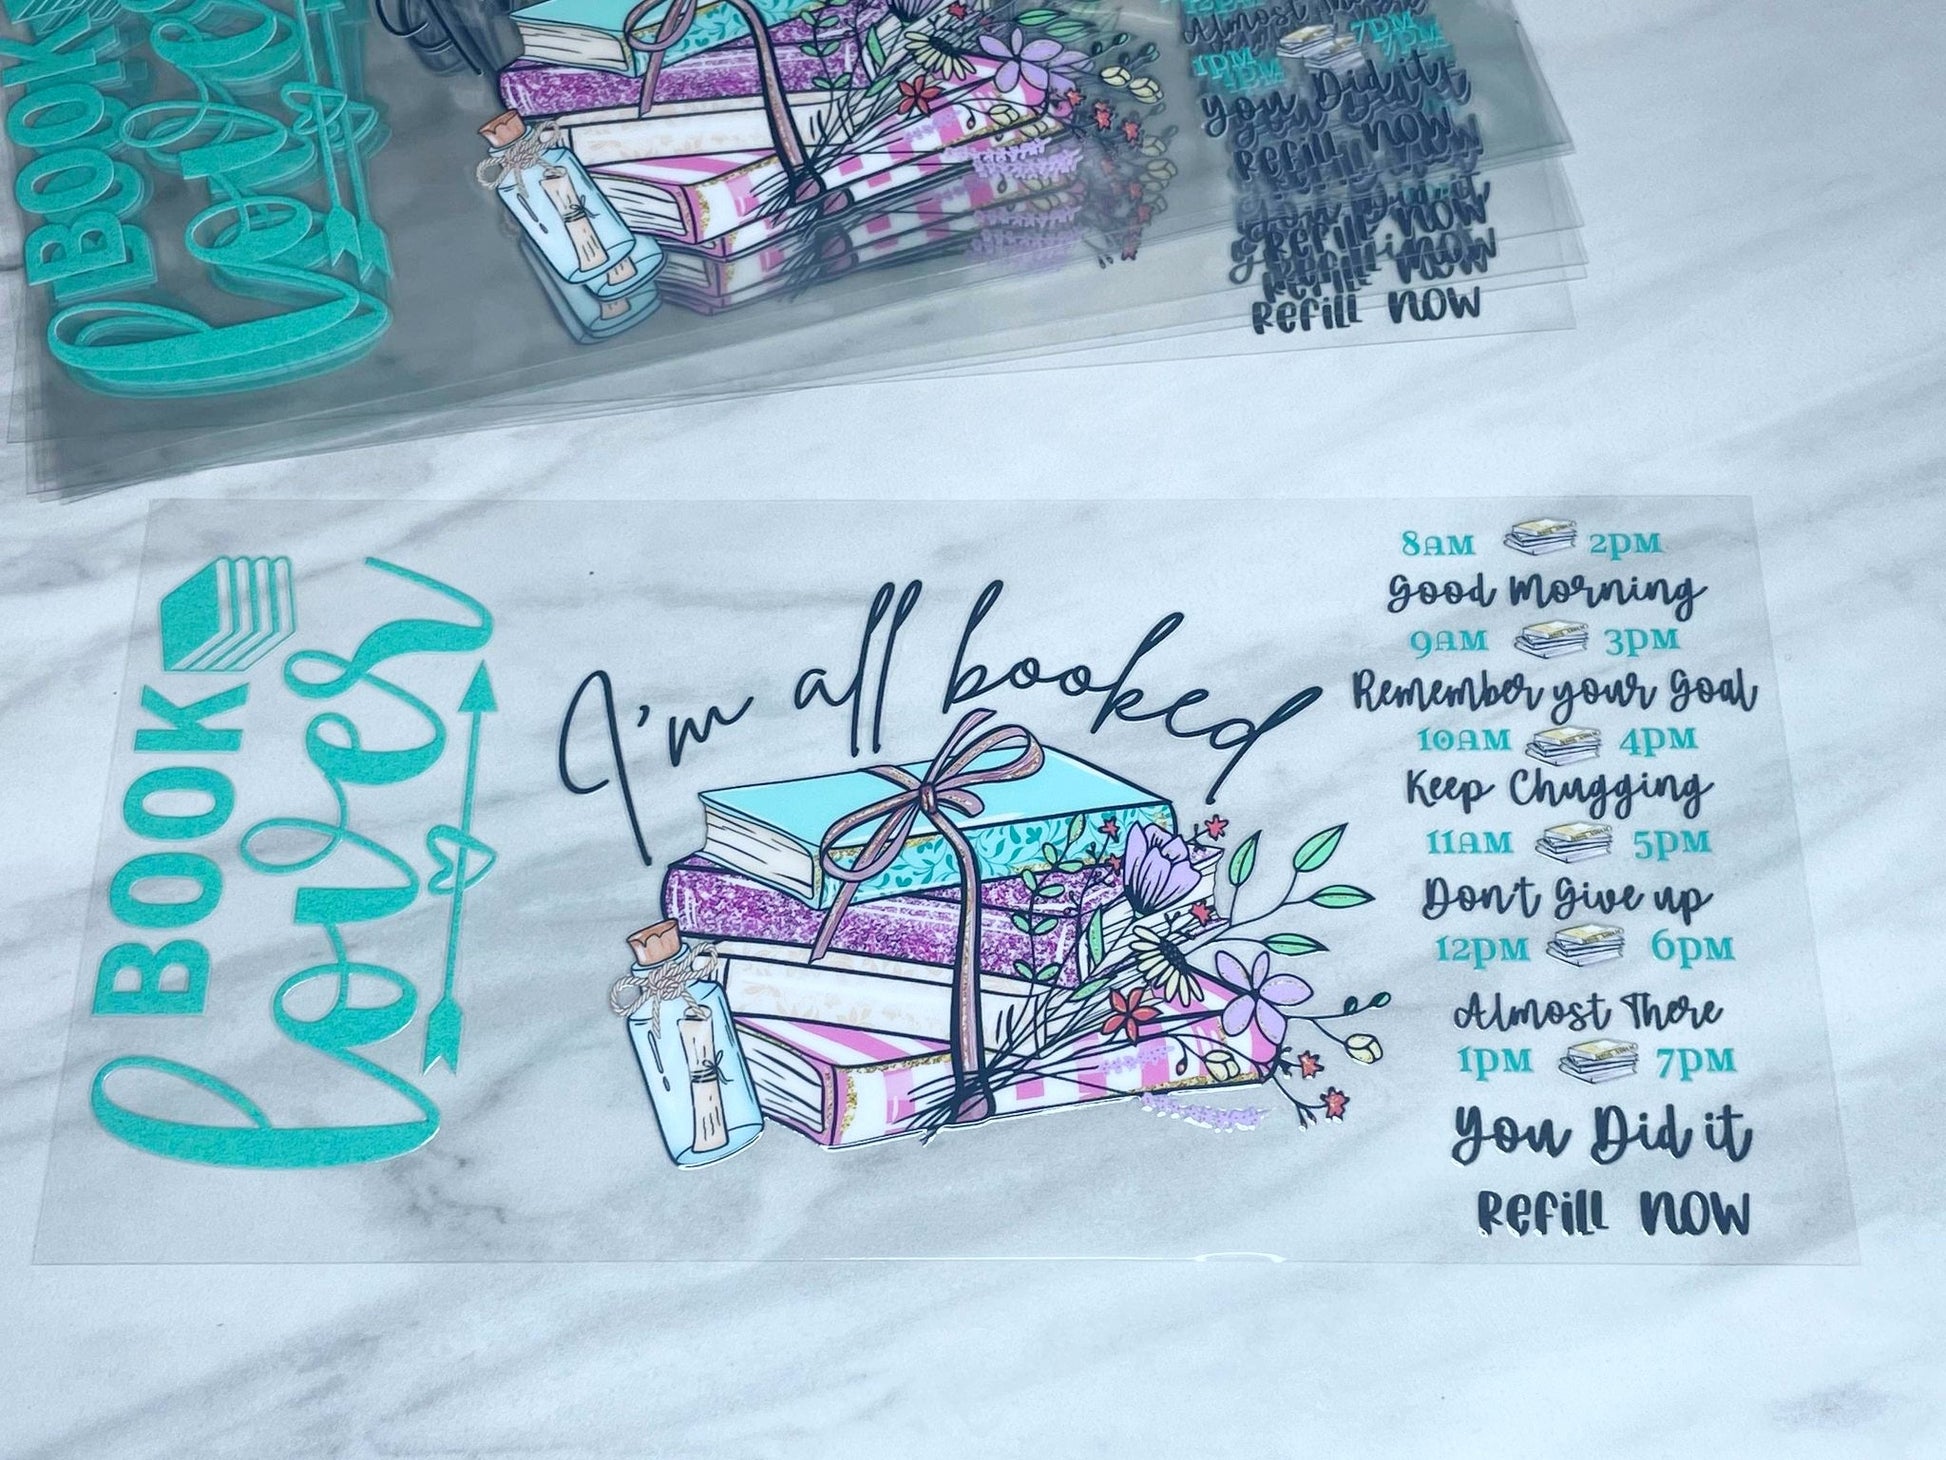 BOOK
Lover
Almost There
1PM 7PM
You Did it
Refill NOW
You Did it
Refill NOW
Refill NOW
Refill NOW
BOOK
Lover
I'm all booked
8AM 2PM
Good Morning
9AM 3PM
Remember your Goal
10AM 4PM
Keep Chugging
11AM 5PM
Don't Give up
12PM 6PM
Almost There
1PM 7PM
You Did it
Refill NOW